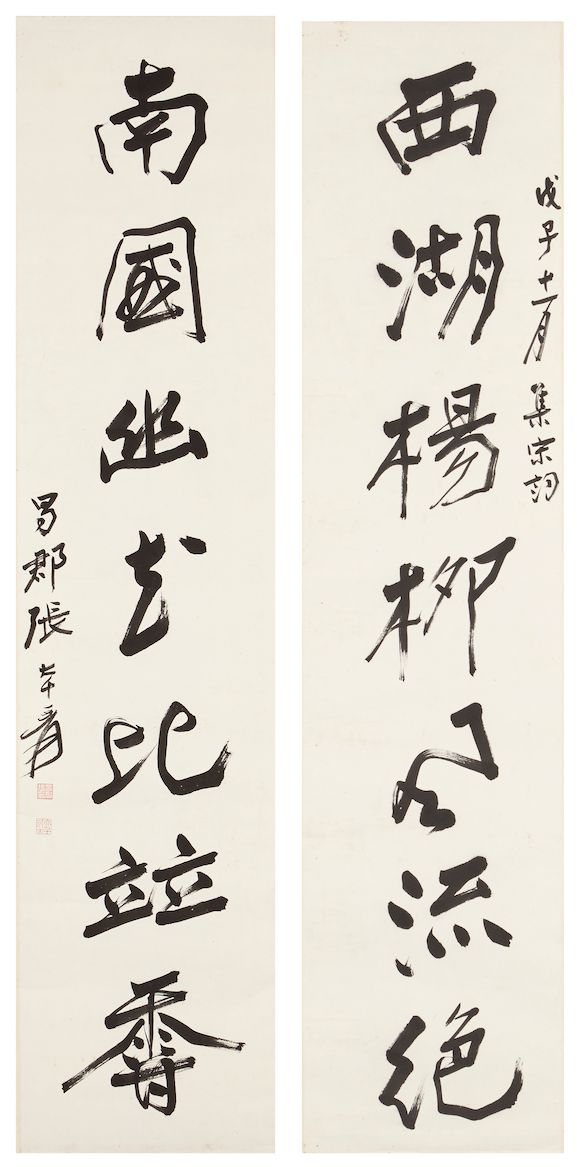 西湖楊柳風流絕
戊子十一月 集宋詞
南國幽花比竝香
蜀郡張大千爰